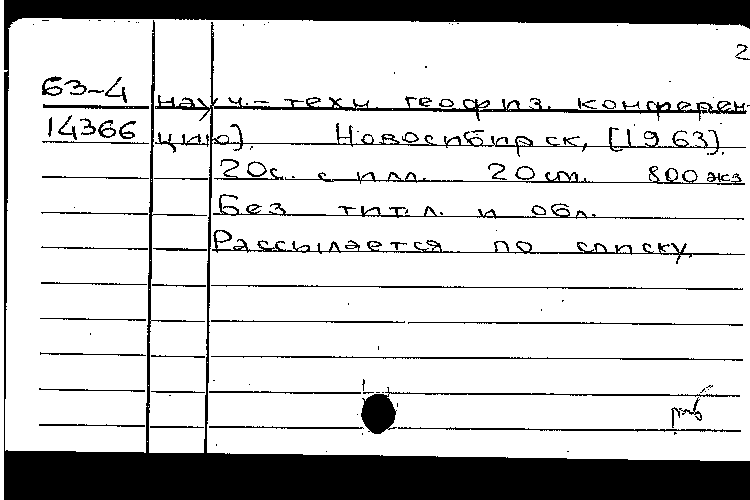 2
63-4 науч.-техн. геофиз. конферен-
14366 цию). Новосибирск, [1963].
20с. с илл. 20 см. 800 экз
Без тит. л. и обл.
Рассылается по списку.